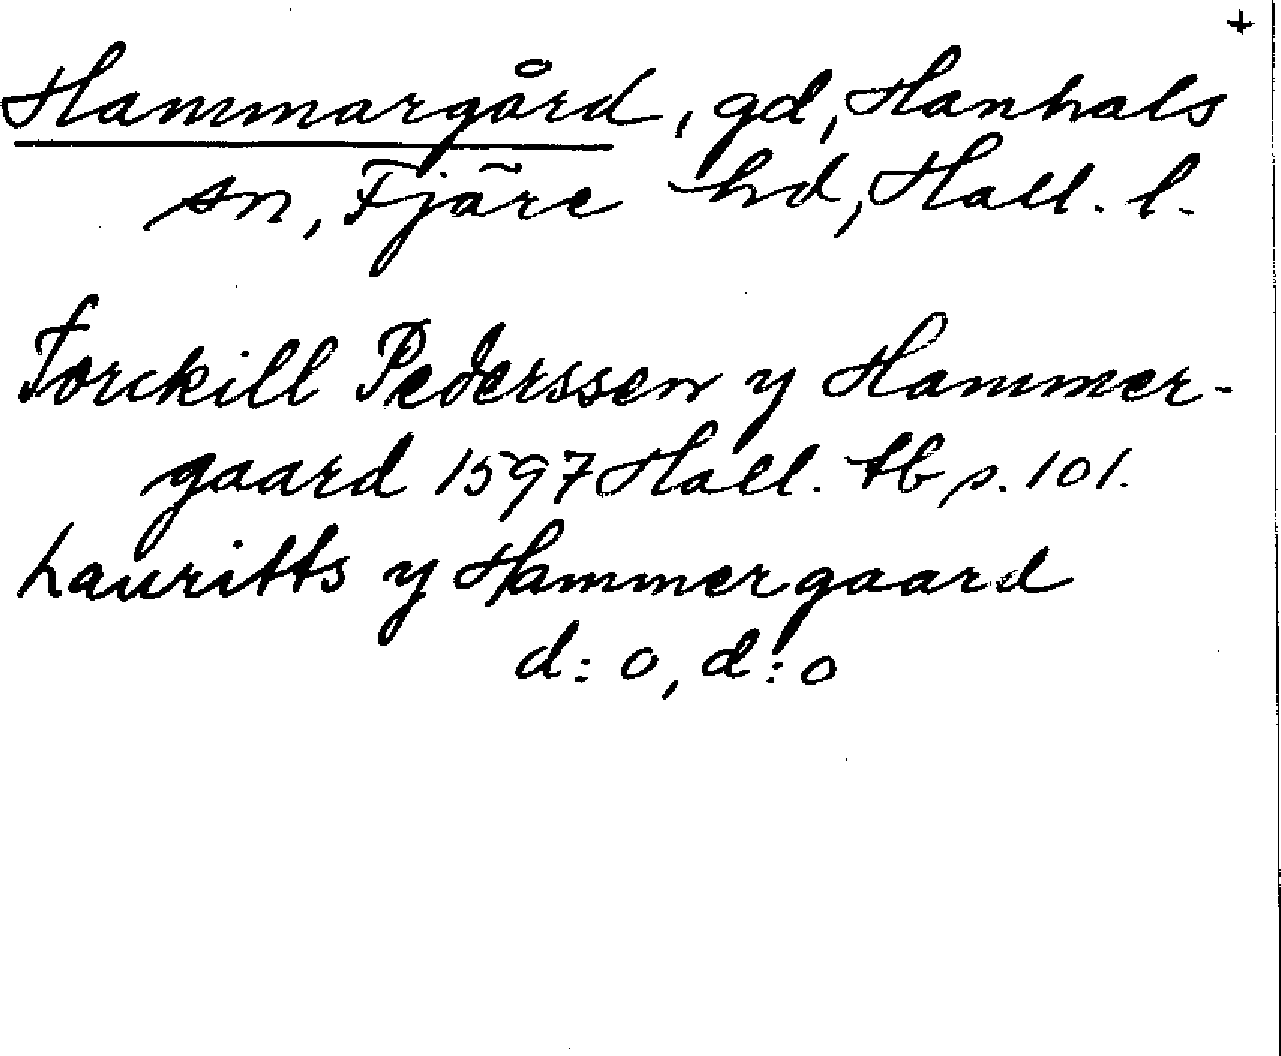 +
Hammargård, gd, Hanhals
sn, Fjäre hd, Hall. l.
Torckill Pederssen y Hammer-
gaard 1597 Hall. tb p. 101.
Lauritts y Hammergaard
d:o, d:o